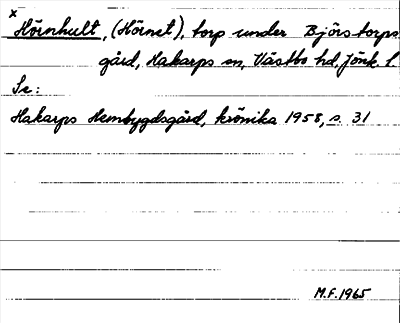 x Hörnhult, (Hörnet), torp under Björstorps
gård, Hakarps sn, Västbo hd, Jönk. l.
Se:
Hakarps Hembygdsgård, krönika 1958, s. 31
M.F. 1965